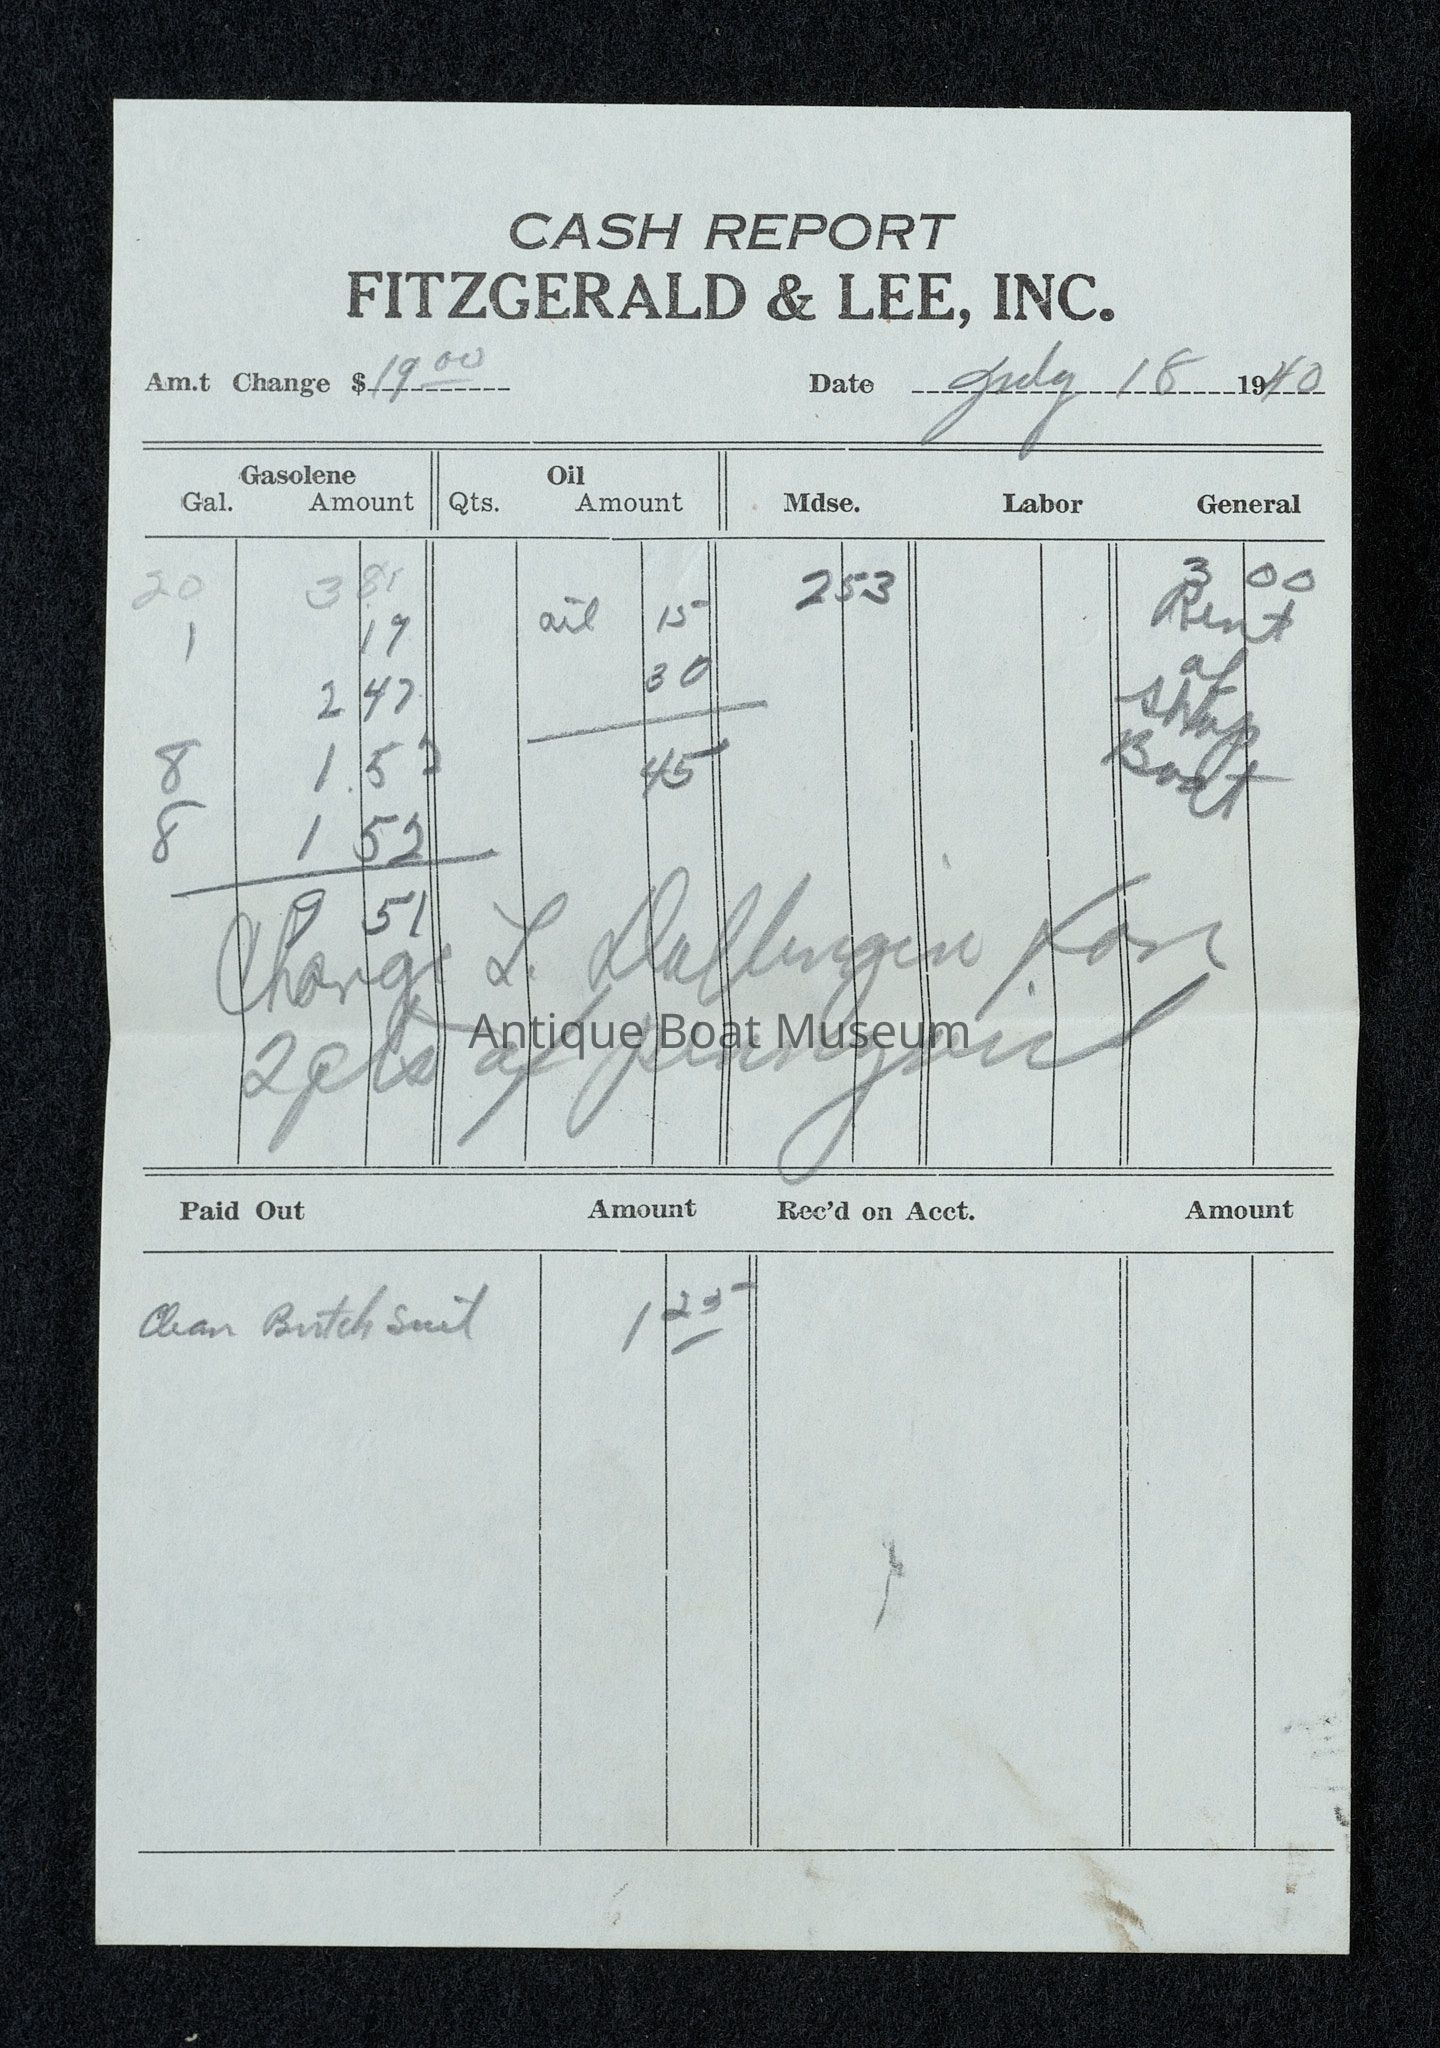 CASH REPORT
FITZGERALD & LEE, INC.
Am.t Change $ 19 00 Date July 18 1940
Gasolene Oil
Gal. Amount Qts. Amount Mdse. Labor General
20 3 81 2 53 3 00
1 19 oil 15 Rent
2 47 30 of
8 1.52 45 Shop
8 1 52 Boat
9 51
Charge L.
2 qts of
Antique Boat Museum
Paid Out Amount Rec'd on Acct. Amount
Clean Butch Suit 1 25